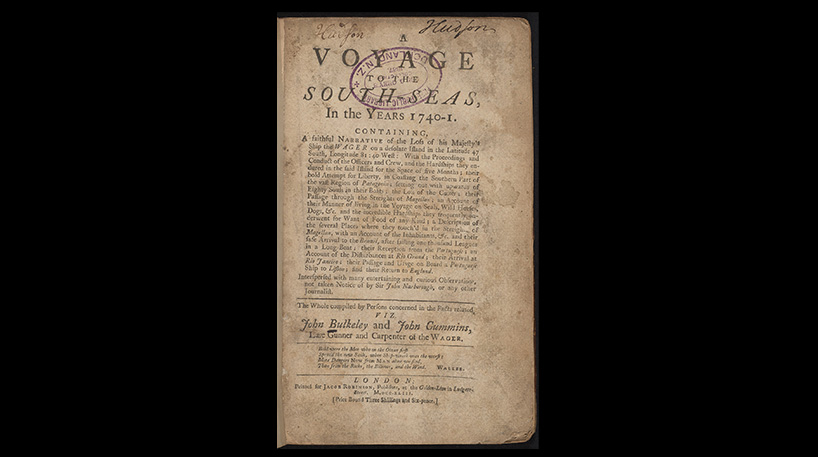 Hudson
Hudson
A
VOYAGE
TO THE
SOUTH-SEAS,
In the YEARS 1740-1.
CONTAINING,
A faithful NARRATIVE of the Loss of his Majesty's
Ship the WAGER on a desolate Island in the Latitude 47
South, Longitude 81:40 West: With the Proceedings and
Conduct of the Officers and Crew, and the Hardships they en-
dured in the said Island for the Space of five Months; their
bold Attempt for Liberty, in Coasting the Southern Part of
the vast Region of Patagonia; setting out with upwards of
Eighty Souls in their Boats; the Loss of the Cutter; their
Passage through the Streights of Magellan; an Account of
their Manner of living in the Voyage on Seals, Wild Horses,
Dogs, &c. and the incredible Hardships they frequently un-
derwent for Want of Food of any Kind; a Description of
the several Places where they touch'd in the Streights of
Magellan, with an Account of the Inhabitants, &c. and their
safe Arrival to the Brazil, after sailing one thousand Leagues
in a Long-Boat; their Reception from the Portuguese; an
Account of the Disturbances at Rio Grand; their Arrival at
Rio Janeiro; their Passage and Usage on Board a Portuguese
Ship to Lisbon; and their Return to England.
Interspersed with many entertaining and curious Observations,
not taken Notice of by Sir John Narborough, or any other
Journalist.
The Whole compiled by Persons concerned in the Facts related,
VIZ.
John Bulkeley and John Cummins,
Late Gunner and Carpenter of the WAGER.
Bold were the Men who on the Ocean first
Spread the new Sails, when Shipwreck was the worst:
More Dangers Now from MAN alone we find,
Than from the Rocks, the Billows, and the Wind. WALLER.
LONDON:
Printed for JACOB ROBINSON, Publisher, at the Golden-Lion in Ludgate-
Street. M.DCC.XLIII.
[Price Bound Three Shillings and Six-pence.]
AUCKLAND N.Z.
PUBLIC LIBRARY